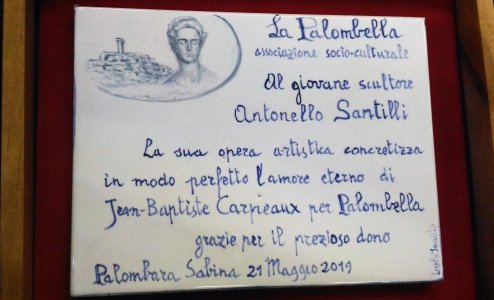 La Palombella
associazione socio-culturale
Al giovane scultore
Antonello Santilli
La sua opera artistica concretizza
in modo perfetto l'amore eterno di
Jean-Baptiste Carpeaux per Palombella
grazie per il prezioso dono
Palombara Sabina 21 Maggio 2019